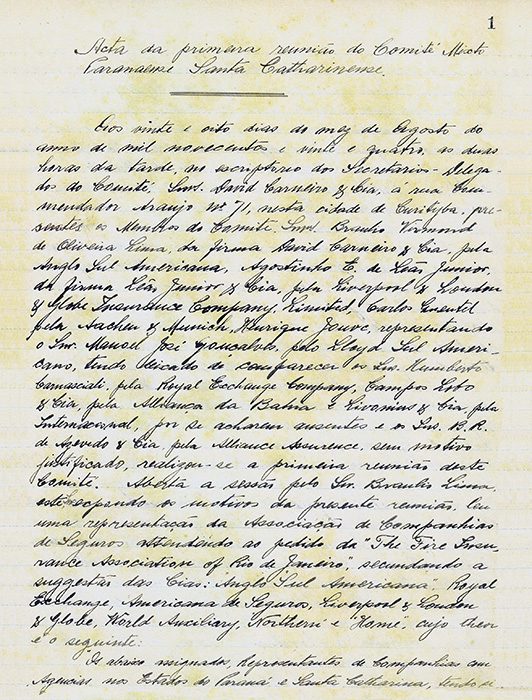 1
Acta da primeira reunião do Comité Mixto
Paranaense Santa Catharinense.
Aos vinte e oito dias do mez de Agosto do
anno de mil novecentos e vinte e quatro, as duas
horas da tarde, no escriptorio dos Secretarios-Delega-
dos do Comité, Snrs. David Carneiro & Cia, a rua Com-
mendador Araujo Nº 71, nesta cidade de Curityba, pre-
sentes os Membros do Comité. Snrs. Braulio Virmond
de Oliveira Lima, da firma David Carneiro & Cia, pela
Anglo Sul Americana, Agostinho E. de Leão Junior,
da firma Leão Junior & Cia, pela Liverpool & London
& Globe Insurance Company, Limited, Carlos
pela Aachen & Munich, Henrique Jouve, representando
o Snr. Manoel José Gonçalves, pelo Lloyd Sul Ameri-
cano, tendo deixado de comparecer os Srs. Humberto
pela Royal Exchange Company, Campos Lobo
& Cia, pela Alliança da Bahia e Livonius & Cia, pela
Internacional, por se acharem ausentes e os Srs. B. R.
de Azevedo & Cia pela Alliance Assurence, sem motivo
justificado, realizou-se a primeira reunião deste
Comité. Aberta a sessão pelo Snr. Braulio Lima,
este, expondo os motivos da presente reunião, leu
uma representação da Associação de Companhias
de Seguros attendendo ao pedido da "The Fire Insu-
rance Association of Rio de Janeiro", secundando a
suggestão das Cias: Anglo Sul Americana, Royal
Exchange, Americana de Seguros, Liverpool & London
& Globe, World Auxiliary, Northern e "Home", cujo theor
é o seguinte:
Os abaixo assignados, Representantes de Companhias com
Agencias nos Estados do Paraná e Santa Catharina, tendo se